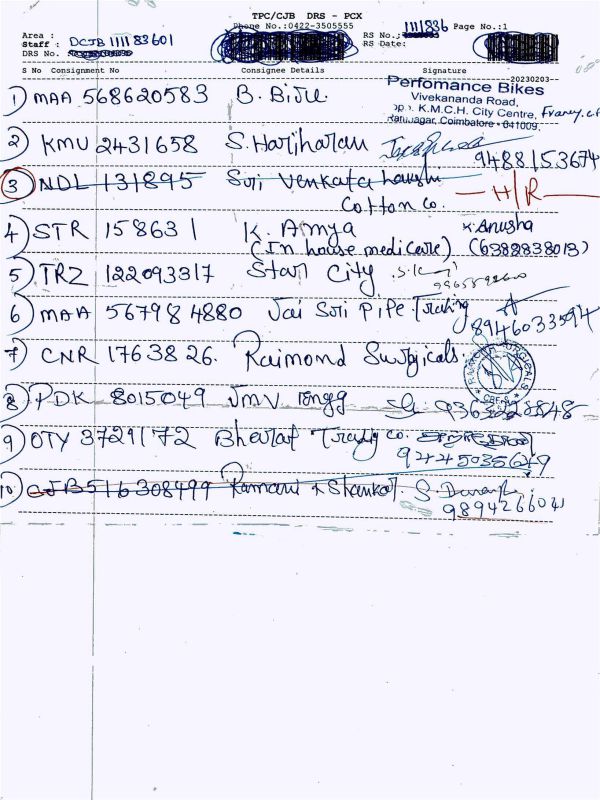 TPC/CJB DRS - PCX
Phone No.:0422-3505555
1111836 Page No.:1
Area :
Staff : DCJB 1111 83601
DRS No.
RS No.:
RS Date:
S No Consignment No Consignee Details Signature
--20230203--
1) MAA 568620583 B. Biju
Perfomance Bikes
Vivekananda Road,
Opp. K.M.C.H. City Centre,
Ramnagar, Coimbatore - 641009.
2) KMU 2431658 S. Hariharan
9488153674
3) NDL 131895 Sri Venkata
Cotton Co.
H/R
4) STR 158631 K. Amya
(In house medicare)
K. Anusha
(6382838013)
5) TRZ 122093317 Star City
6) MAA 567984880 Jai Sri Pipe Trading
8946033594
7) CNR 1763826. Raimond Surgicals.
RAIMOND SURGICALS
8) PDK 8015049 JMV Engg
9) OTY 37291172 Bharat Trading Co.
9445035649
10) CJB516308499 Ramani & Shankar.
9894266041